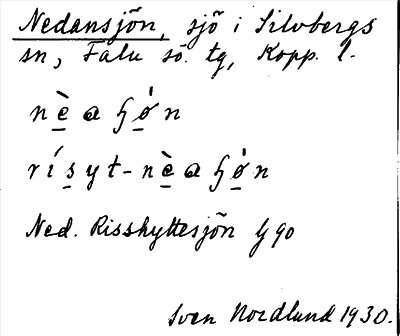 Nedansjön, sjö i Silvbergs
sn, Falu sö. tg, Kopp. l.
nèa ɧòn
rísyt-nèa ɧòn
Ned. Risshyttesjön G 90
Sven Nordlund 1930.